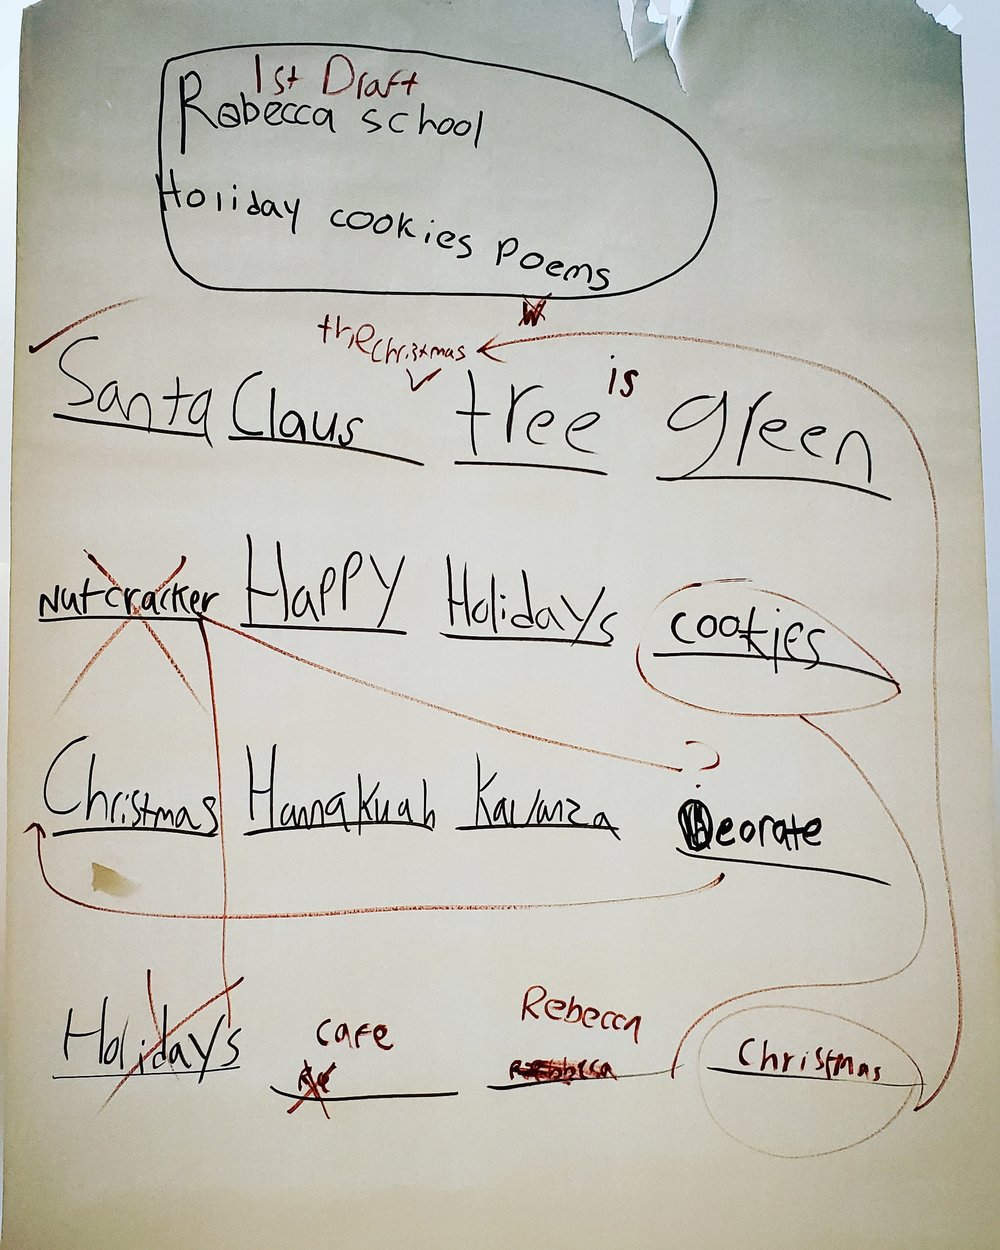 1st Draft
Rebecca school
Holiday cookies poems
the christmas
Santa Claus tree is green
Nutcracker Happy Holidays cookies
?
Christmas Hannakuah Kawanza Deorate
Rebecca
cafe
Holidays Christmas